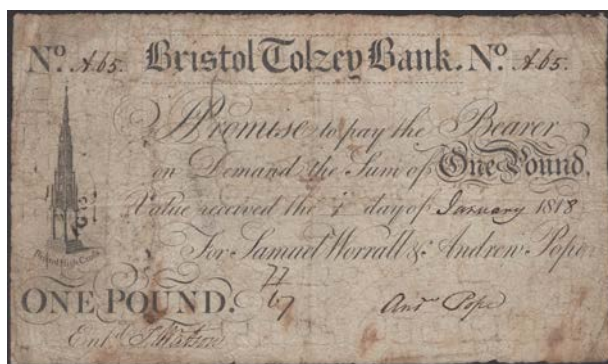 No. A65. Bristol Tolzey Bank. No. A65.
Promise to pay the Bearer
on Demand the Sum of One Pound.
Value received the 1 day of January 1818
For Samuel Worrall & Andrew Pope
Bristol High Cross
ONE POUND.
And Pope
Entd J Watson